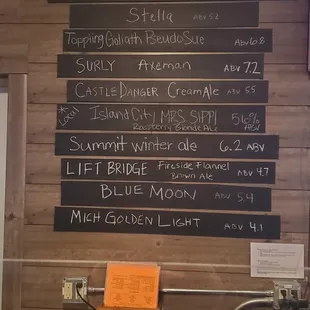 Stella ABV 5.2
Toppling Goliath PseudoSue ABV 6.8
SURLY Axeman ABV 7.2
CASTLE DANGER CREAM ALE ABV 5.5
*Local Island City MRS. SIPPI 5.6%
Raspberry Blonde Ale ABV
Summit winter ale 6.2 ABV
LIFT BRIDGE Fireside Flannel ABV 4.7
Brown Ale
BLUE MOON ABV 5.4
MICH GOLDEN LIGHT ABV 4.1